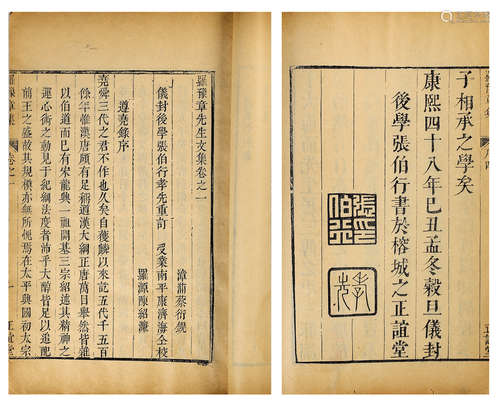 子相承之學矣
康熙四十八年己丑孟冬穀旦儀封
後學張伯行書於榕城之正誼堂
張伯行
孝先
羅豫章先生文集卷之一
儀封後學張伯行孝先重訂
受業南平康濟海全校
漳浦蔡衍鎤
羅源陳紹濂
遵堯錄序
堯舜三代之君不作也久矣自獲麟以來訖五代千五百
餘年惟漢唐頗有足稱道漢大綱正唐萬目舉然皆雜
以伯道而已有宋龍興一祖開基三宗紹述其精神之
運心術之動見於紀綱法度者沛乎大醇皆足以追配
前王之盛故其規模亦無所愧焉在太平興國初太宗
卷之一